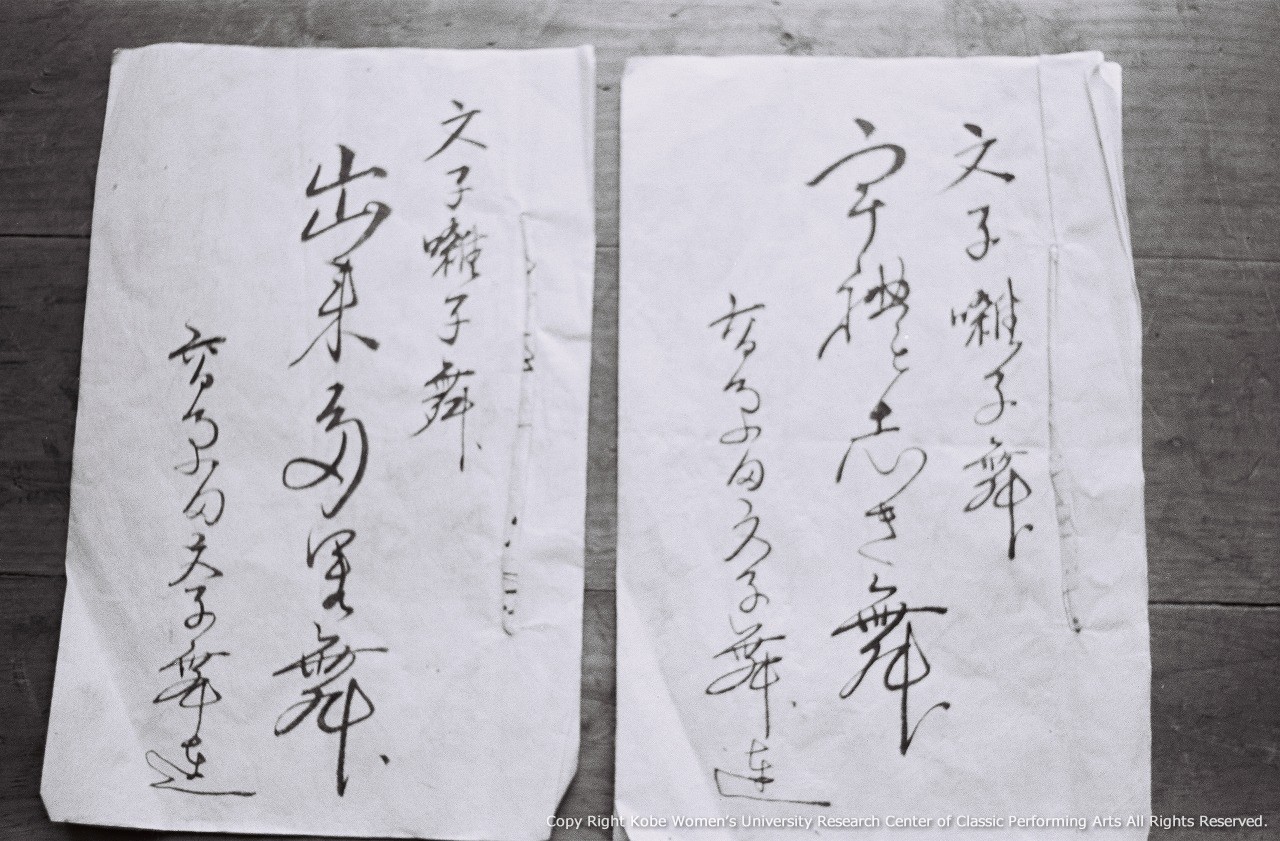 文子囃子舞
宇禮志き舞
田文子舞連
文子囃子舞
出来多舞
田文子舞連
Copy Right Kobe Women's University Research Center of Classic Performing Arts All Rights Reserved.